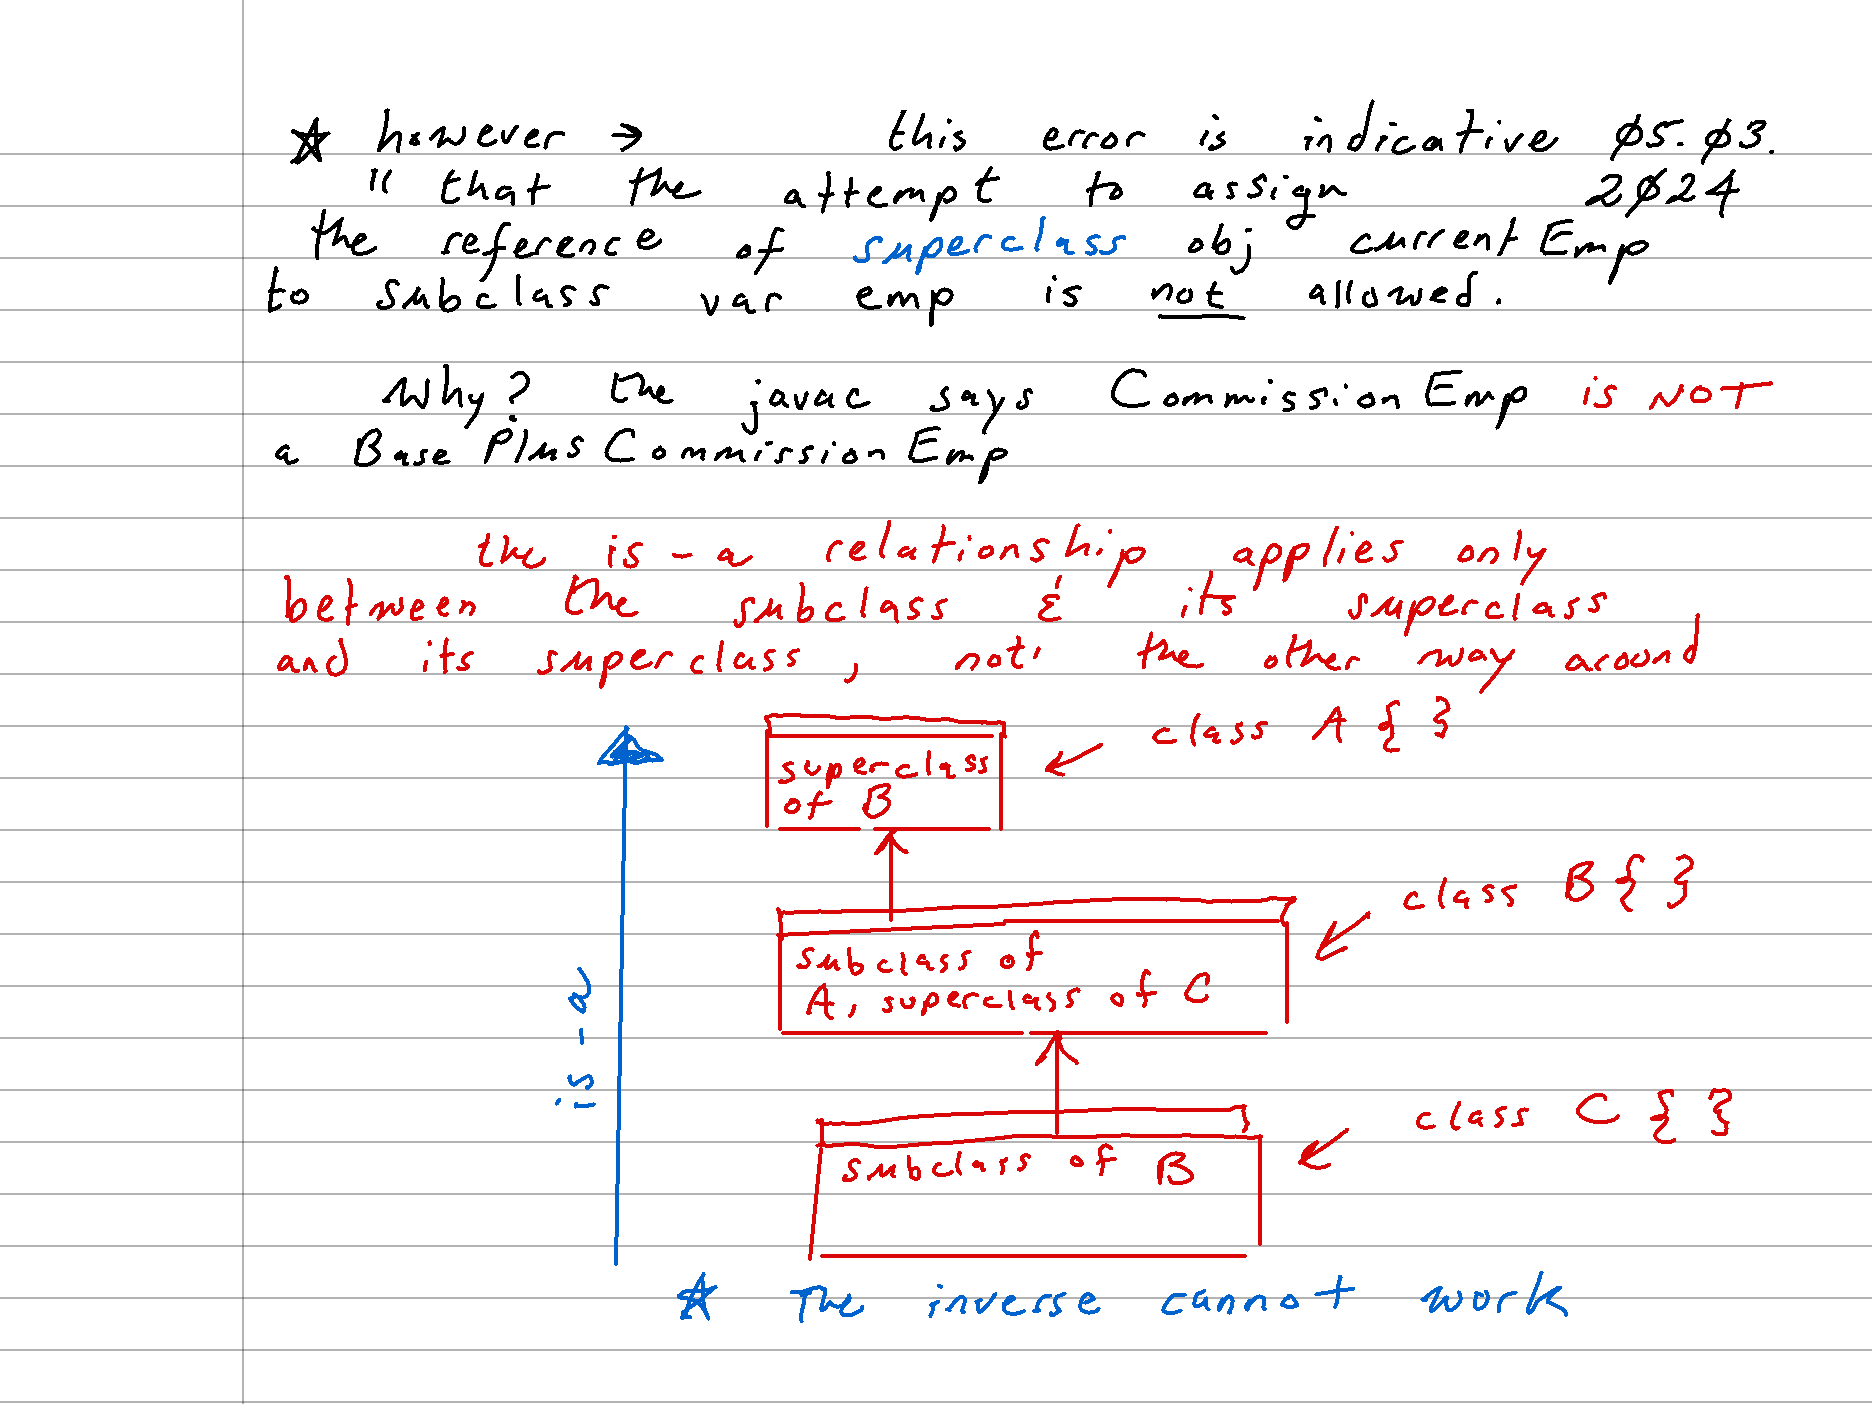 ☆ however → this error is indicative Ø5.Ø3.
" that the attempt to assign 2Ø24
the reference of superclass obj currentEmp
to subclass var emp is not allowed.
Why? the javac says CommissionEmp is NOT
a BasePlusCommissionEmp
the is-a relationship applies only
between the subclass & its superclass
and its superclass, not the other way around
class A { }
superclass
of B
class B { }
subclass of
A, superclass of C
is-a
class C { }
subclass of B
☆ The inverse cannot work